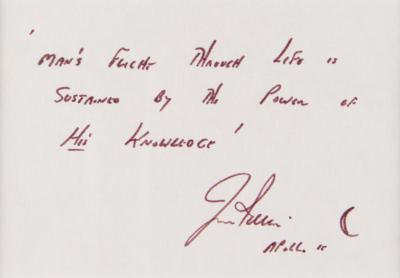 'MAN'S FLIGHT THROUGH LIFE IS
SUSTAINED BY THE POWER OF
HIS KNOWLEDGE'
APOLLO 15